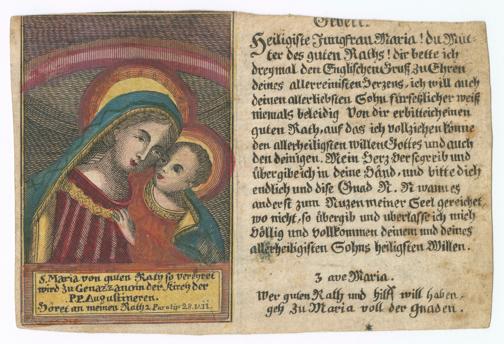 S. Maria von guten Rath so verehret
wird zu Genazzano in der Kirch der
P.P. Augustineren.
Höret an meinen Rath 2. Paralip. 28. v. 11.
Gebett.
Heiligiste Jungfrau Maria! du Mut-
ter des guten Raths! dir bette ich
dreymal den Englischen Gruß zu Ehren
deines allerreinisten Herzens, ich will auch
deinen allerliebsten Sohn fürsetzlicher weiß
niemals beleidig Von dir erbitte ich einen
guten Rath, auf das ich vollziehen könne
den allerheiligsten willen Gottes und auch
den deinigen. Mein Herz verschreib und
übergibe ich in deine Händ, und bitte dich
endlich und dise Gnad N. N. wann es
anderst zum Nuzen meiner Seel gereichet,
wo nicht, so übergib und uberlasse ich mich
völlig und vollkommen deinem und deines
allerheiligsten Sohns heiligsten Willen.
3 ave Maria.
Wer guten Rath und hilff will haben,
geh zu Maria voll der Gnaden.